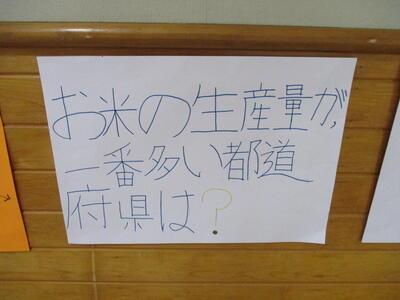 お米の生産量が、
一番多い都道
府県は?